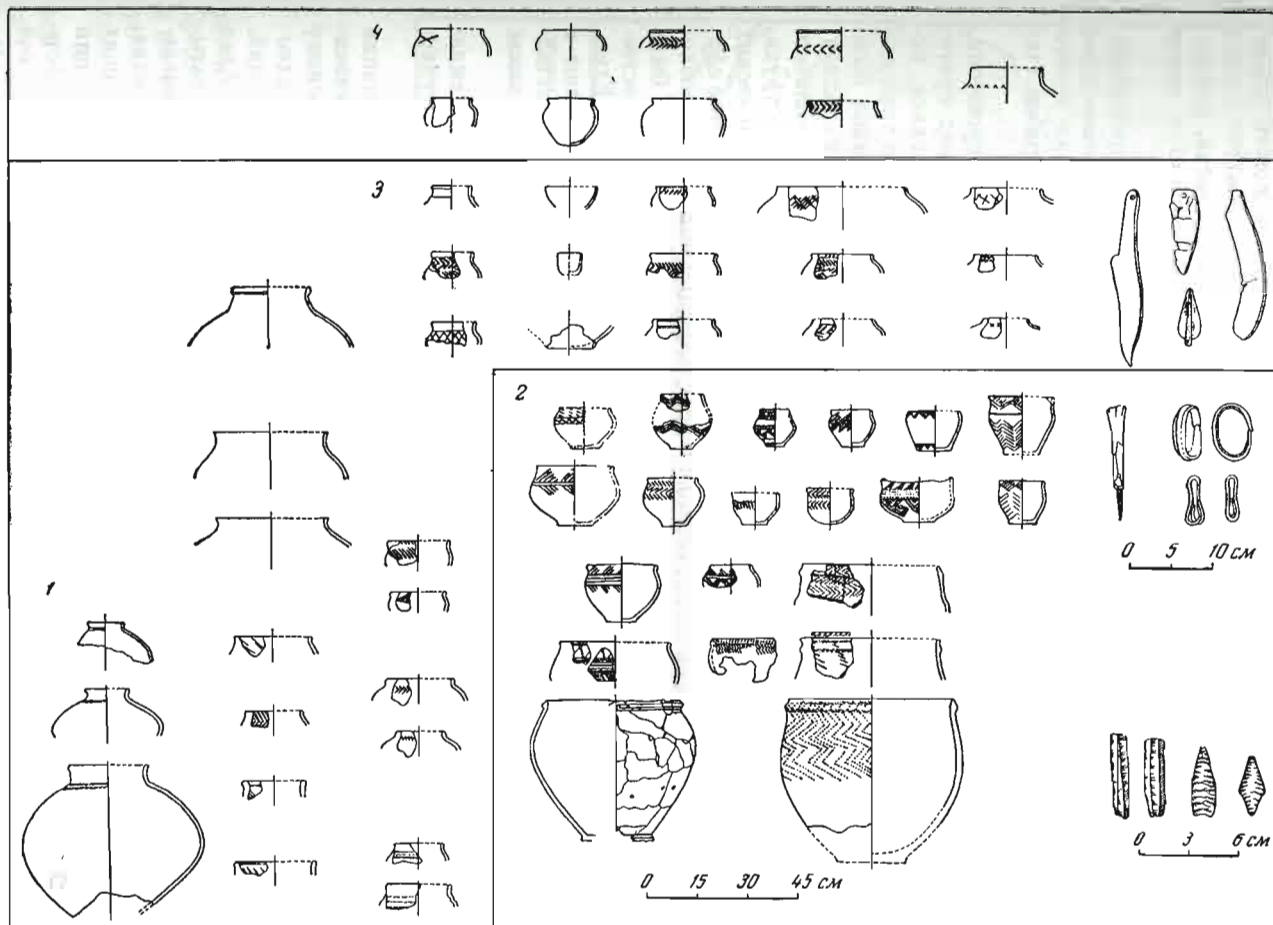 4
3
2
0 5 10 см
1
0 3 6 см
0 15 30 45 см